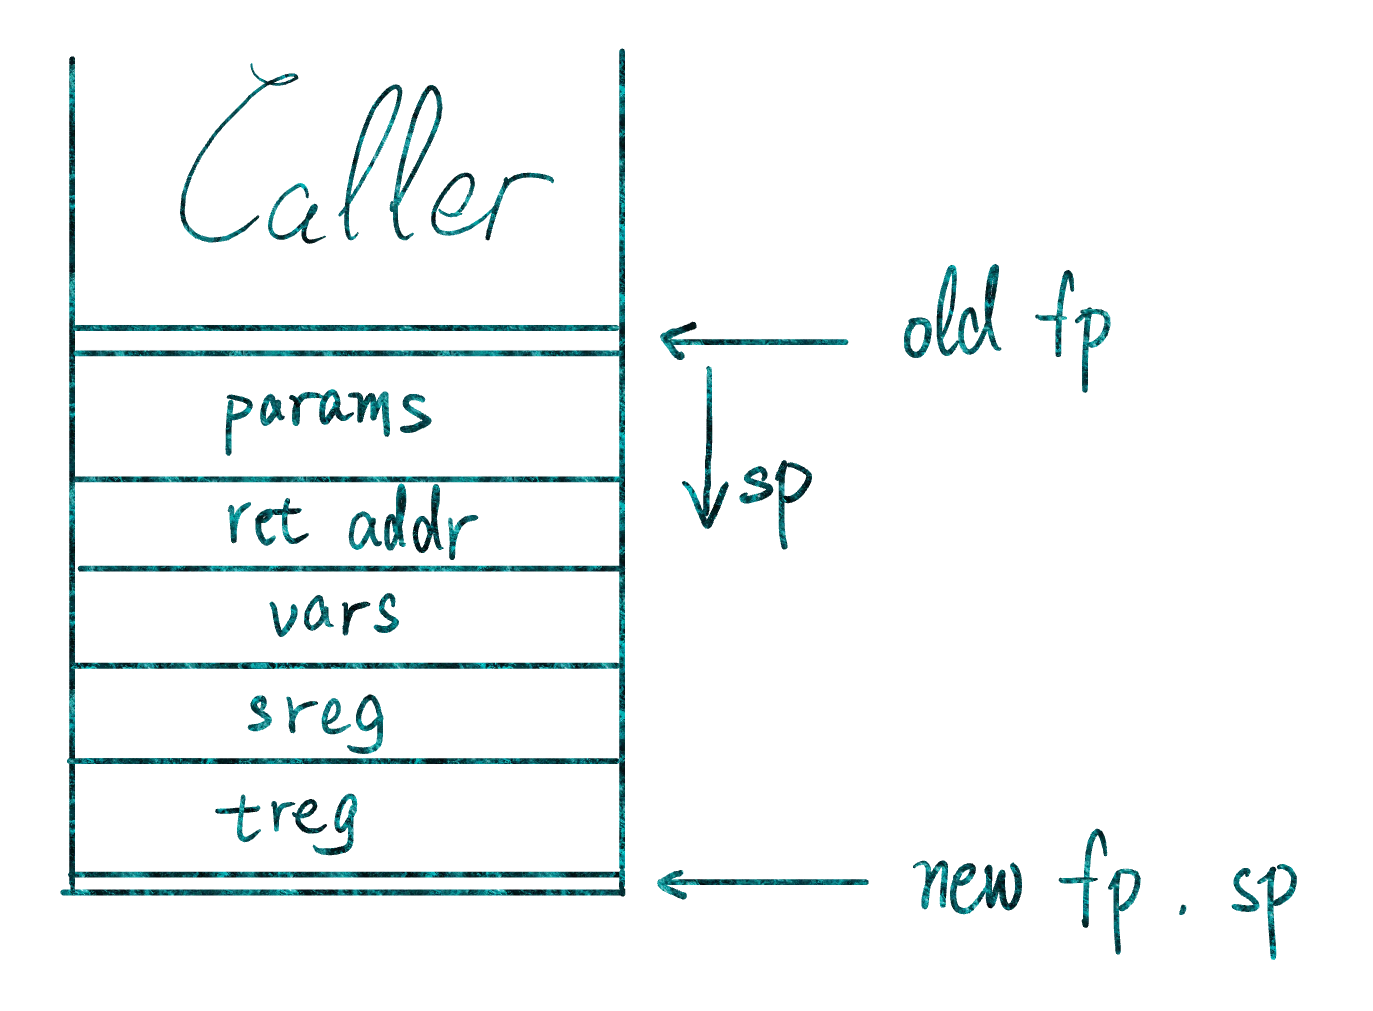 Caller
old fp
params
sp
ret addr
vars
sreg
treg
new fp . sp